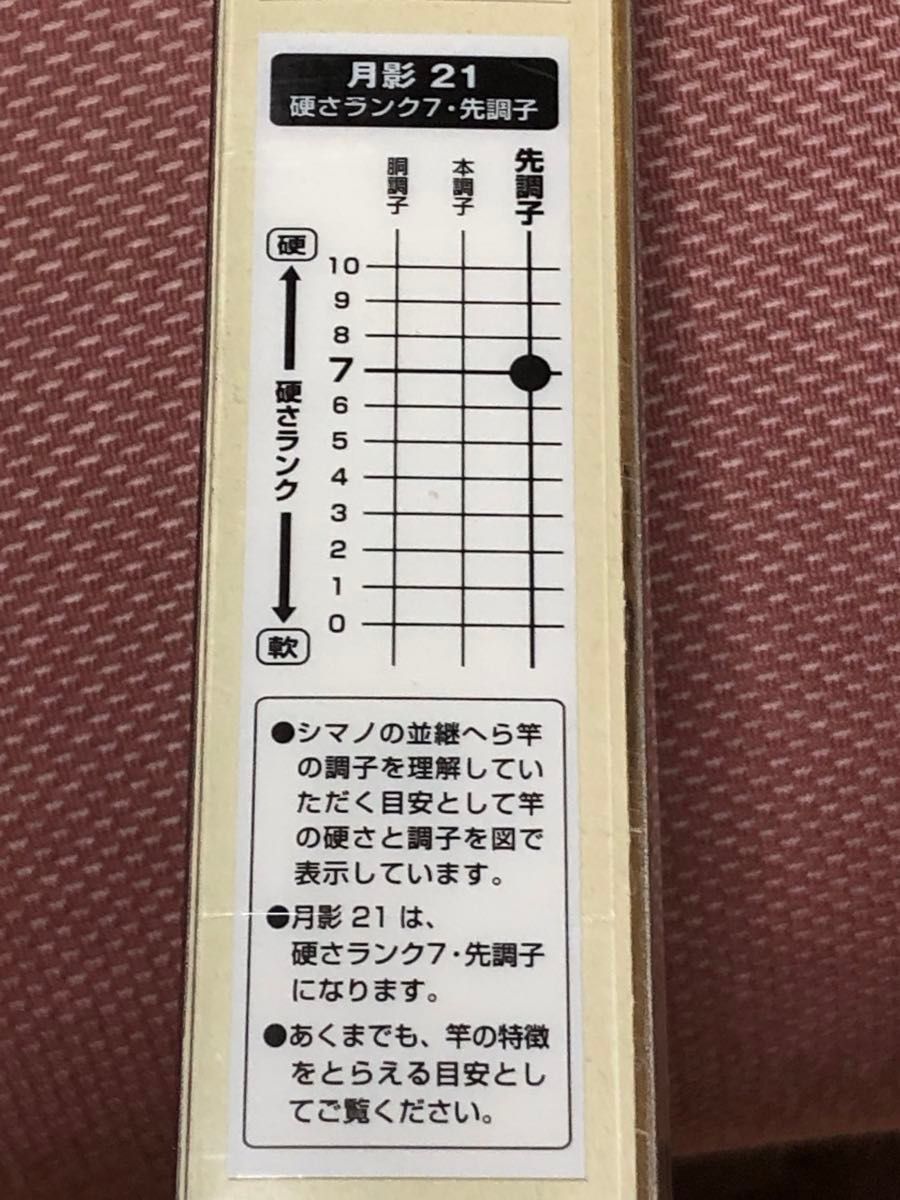 月影 21
硬さランク7・先調子
胴調子
本調子
先調子
硬
硬さランク
軟
10
9
8
7
6
5
4
3
2
1
0
●シマノの並継へら竿
の調子を理解してい
ただく目安として竿
の硬さと調子を図で
表示しています。
●月影 21 は、
硬さランク7・先調子
になります。
●あくまでも、竿の特徴
をとらえる目安とし
てご覧ください。